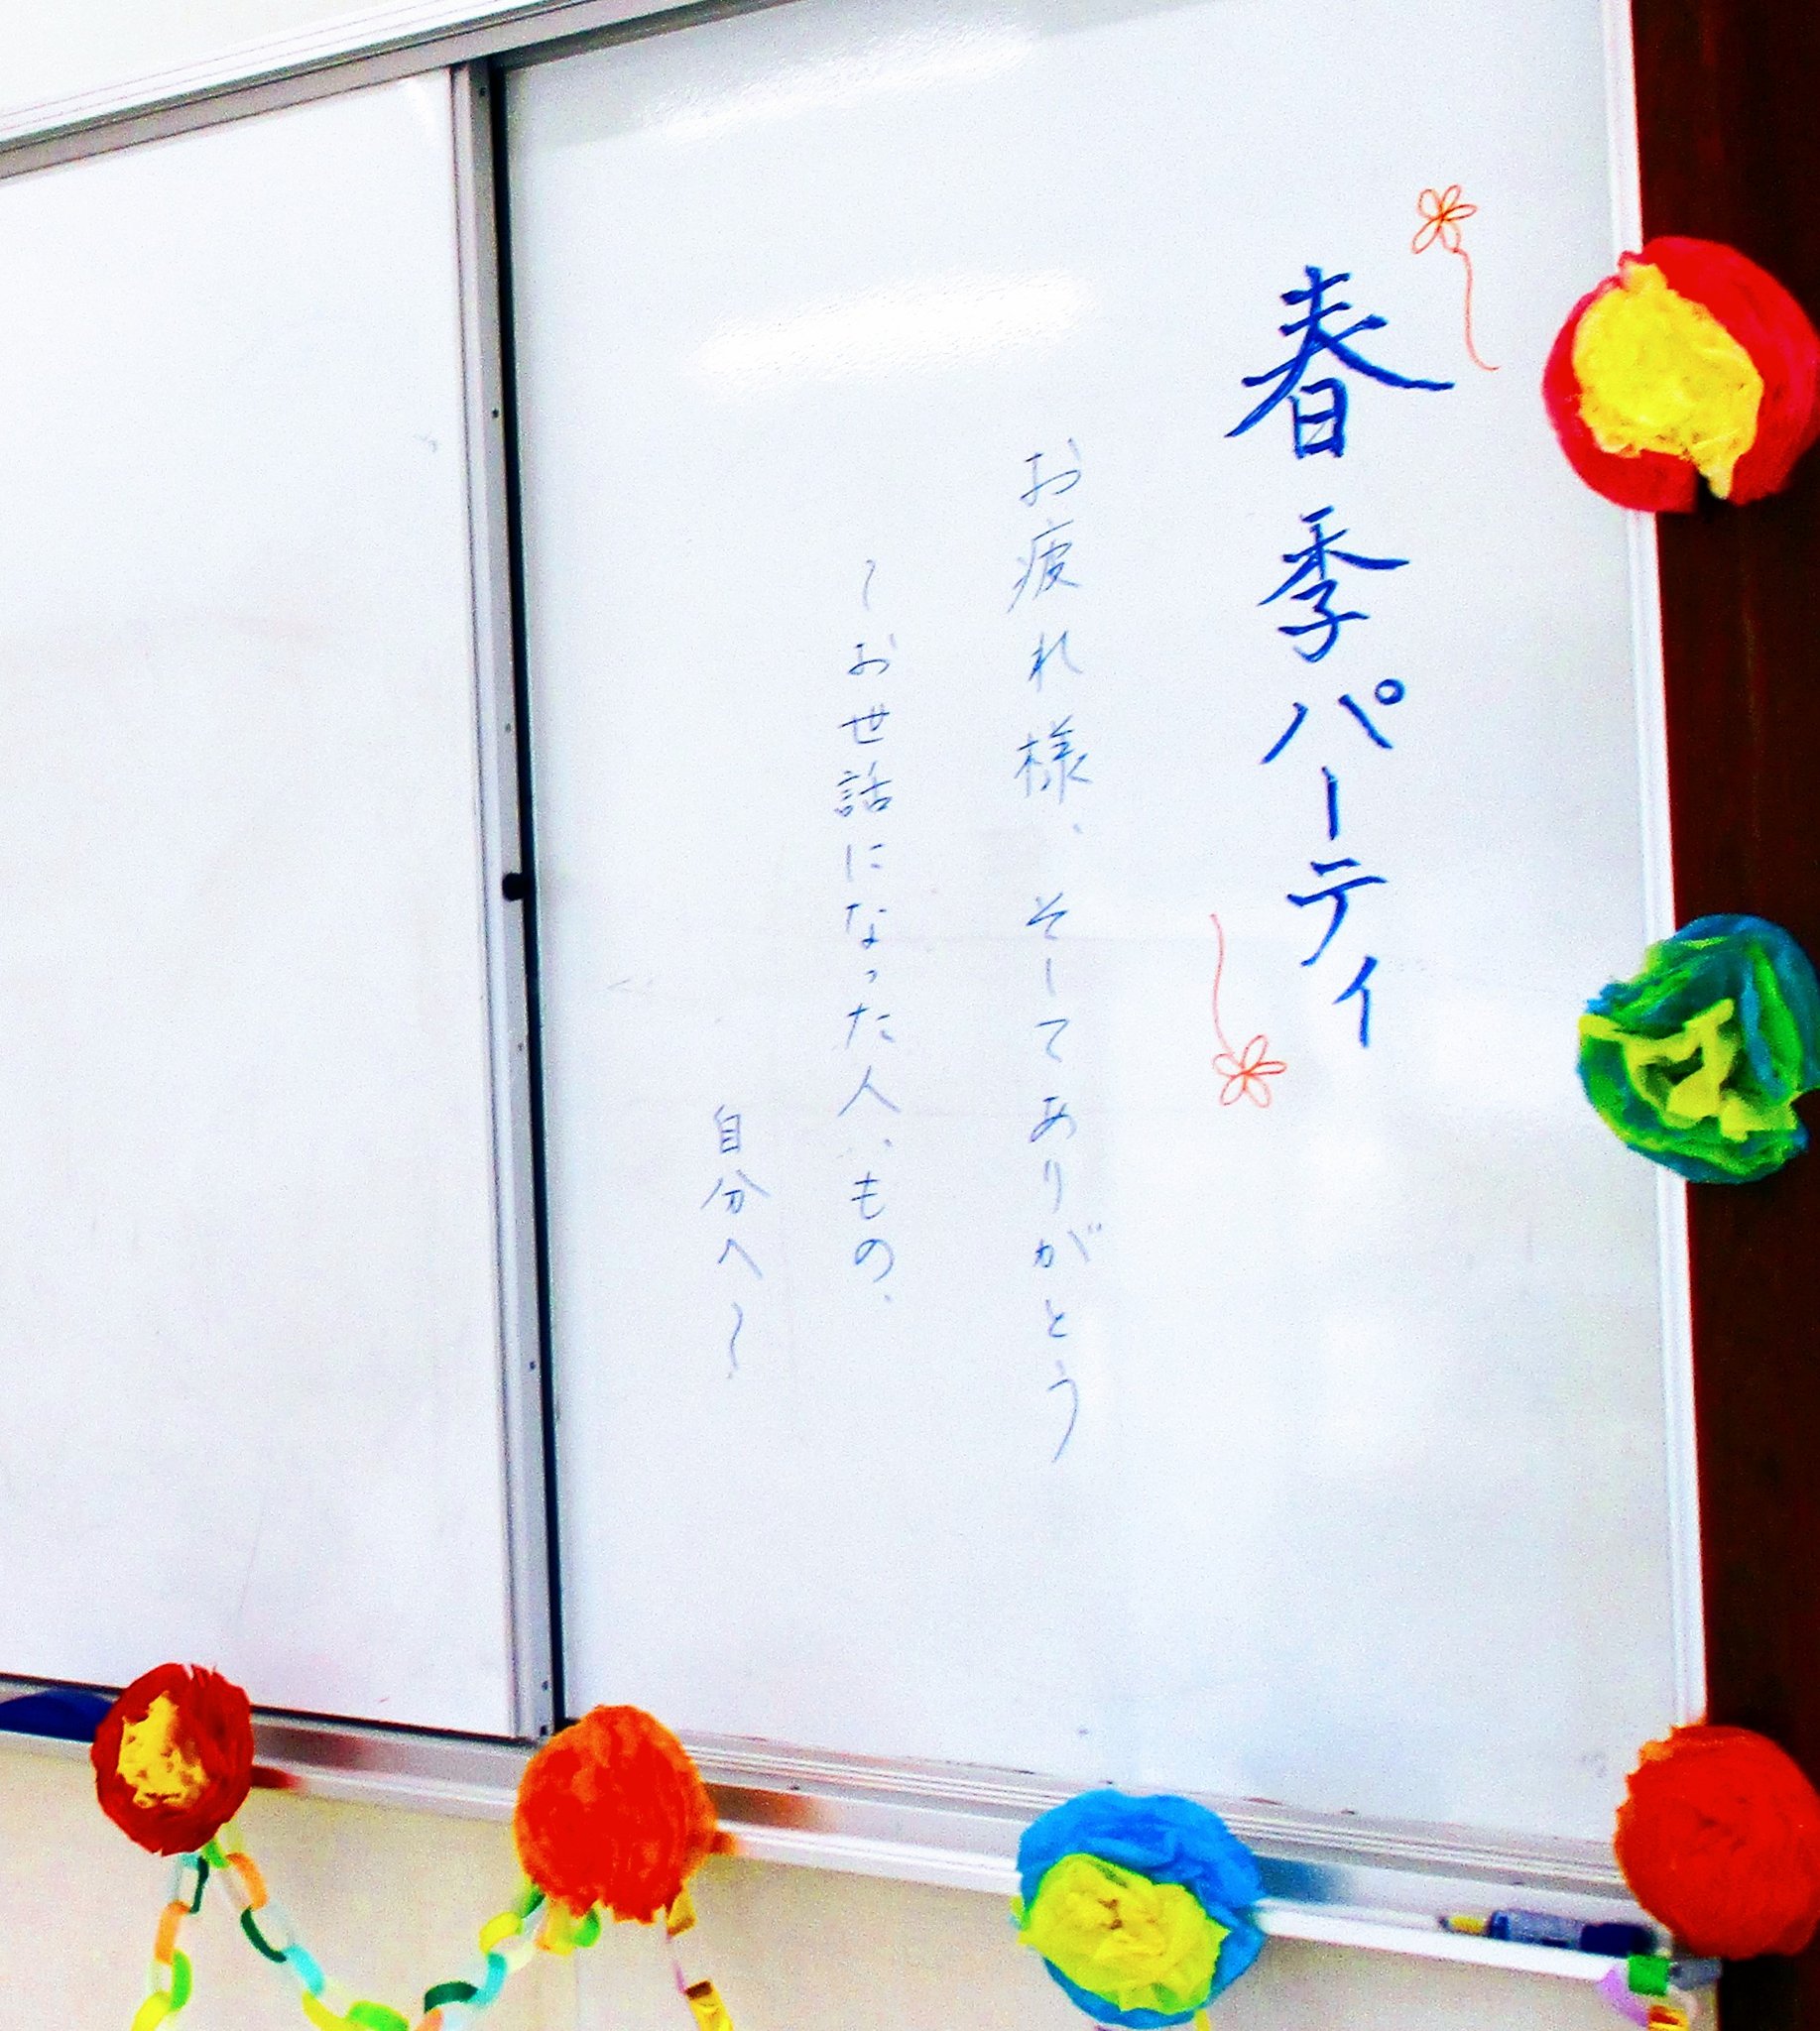 春季パーティ
お疲れ様、そしてありがとう
〜お世話になった人、もの、
自分へ〜